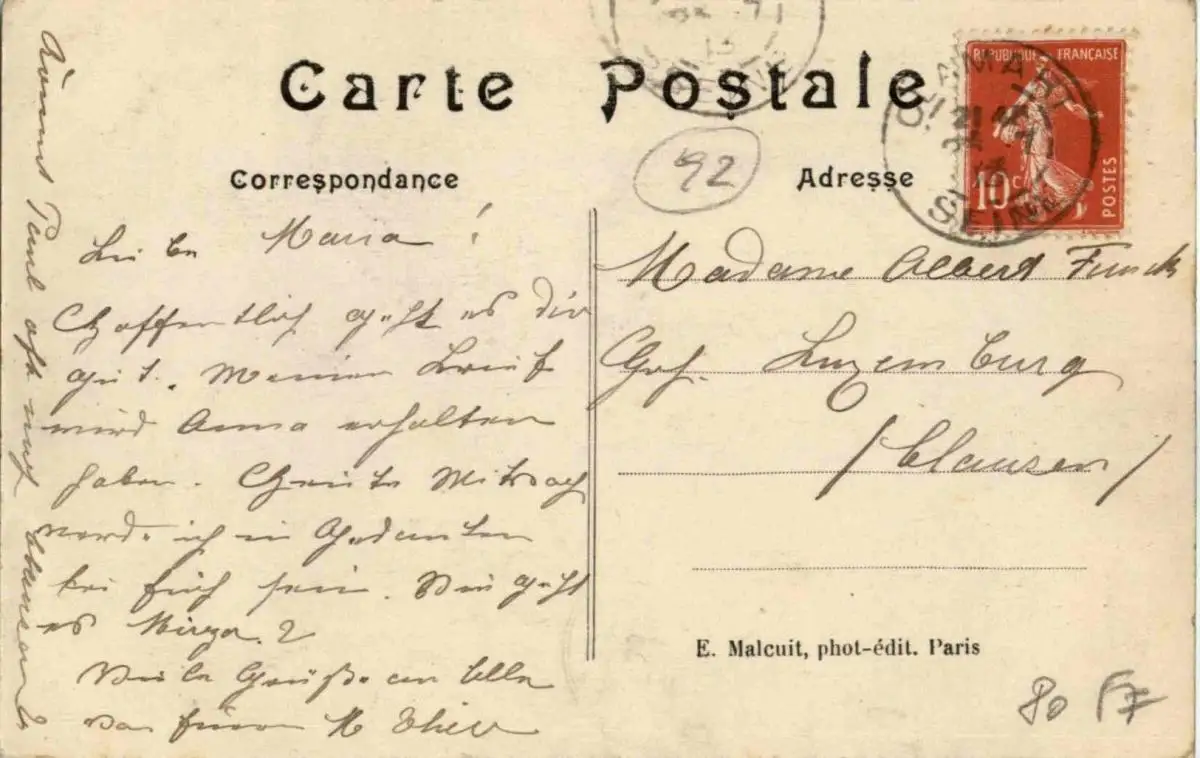 Carte Postale
Correspondance
Adresse
92
RÉPUBLIQUE FRANÇAISE
10 c
POSTES
CLAMART
SEINE
Liebe Maria!
Hoffentlich geht es dir
gut. Meinen Brief
wird Anna erhalten
haben. Heute Mittag
werde ich in Gedanken
bei Euch sein. Wie geht
es
Viele Grüße an Alle
von
Kommt Paul oft nach Clausen?
Madame Albert Funck
Luxemburg
/Clausen/
E. Malcuit, phot-édit. Paris
80